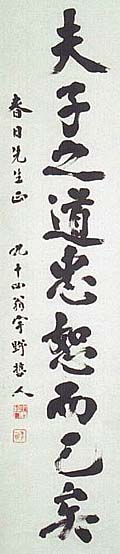 夫子之道忠恕而已矣
春日先生正 九十四翁宇野哲人